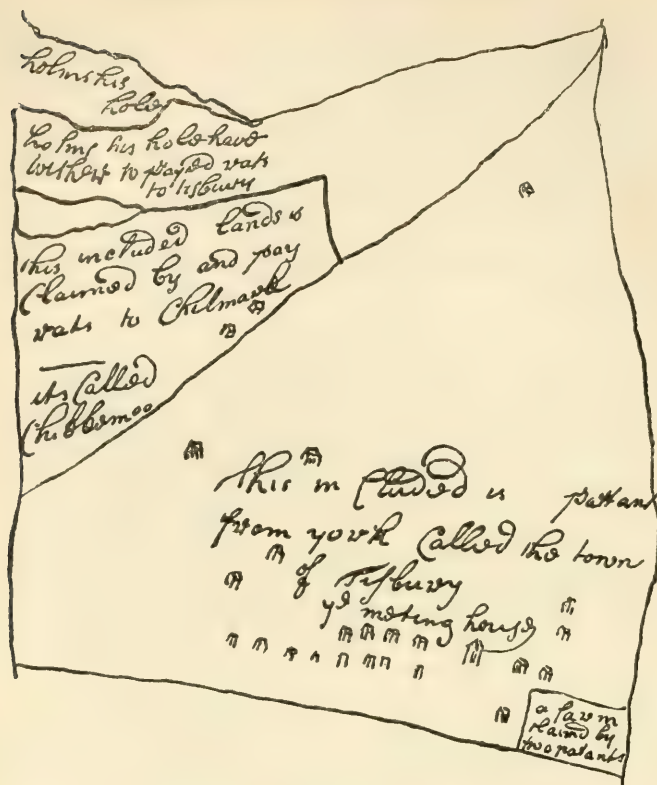 holms his
hole
holms his hole have
withers to payed rats
to tisbury
this included lands is
Claimed by and pay
rats to Chilmark
its Called
Chikkemoo
this in Cluded is pattan
from york Called the town
of Tisbury
ye meting house
a farm
claimd by
two patants